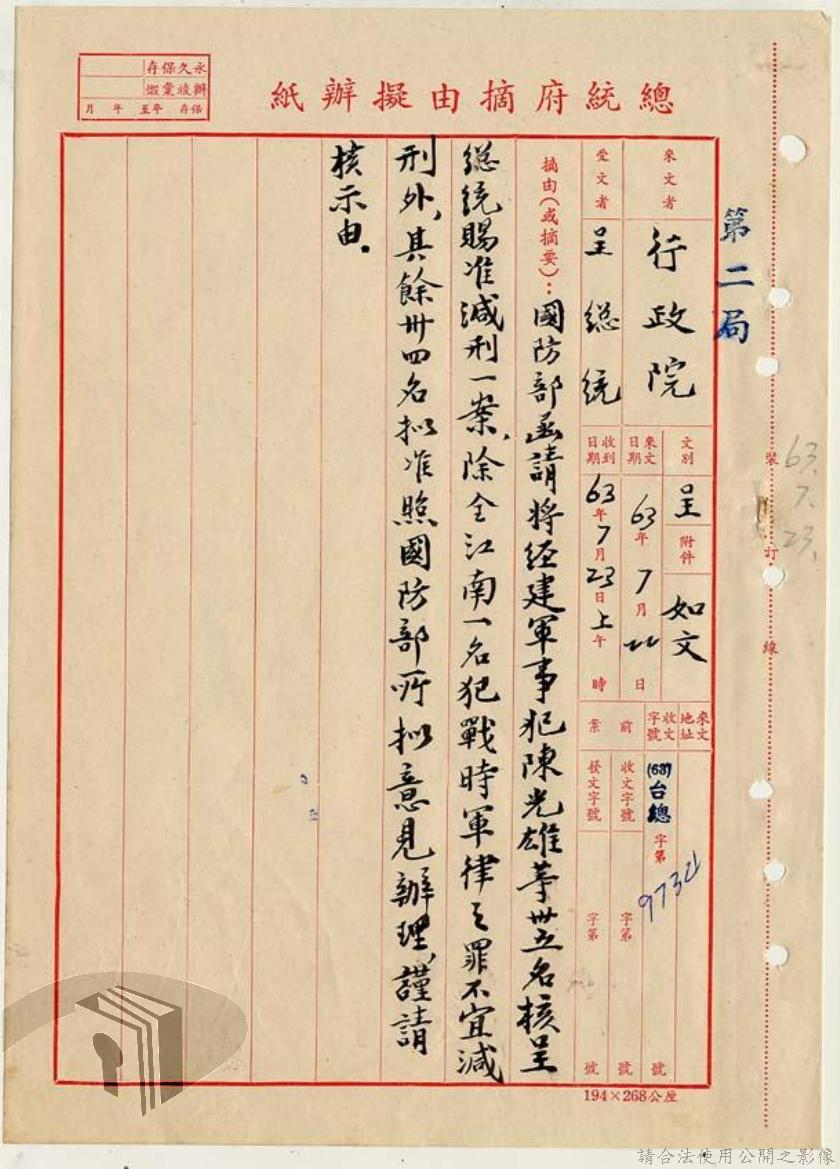 總統府摘由擬辦紙
永久保存
辦竣彙燬
保存 年至 年 月
第二局
來文者 行政院
受文者 呈總統
文別 呈 附件 如文
來文日期 63年7月22日
收到日期 63年7月23日上午 時
來文地址
收文字號 (63)台總字第 號
前案 收文字號 字第 號
發文字號 字第 號
摘由(或摘要)：國防部函請將經建軍事犯陳光雄等卅五名核呈
總統賜准減刑一案、除全江南一名犯戰時軍律之罪不宜減
刑外、其餘卅四名擬准照國防部所擬意見辦理、謹請
核示由。
裝訂線
63.7.23.
194×268公厘
請合法使用公開之影像